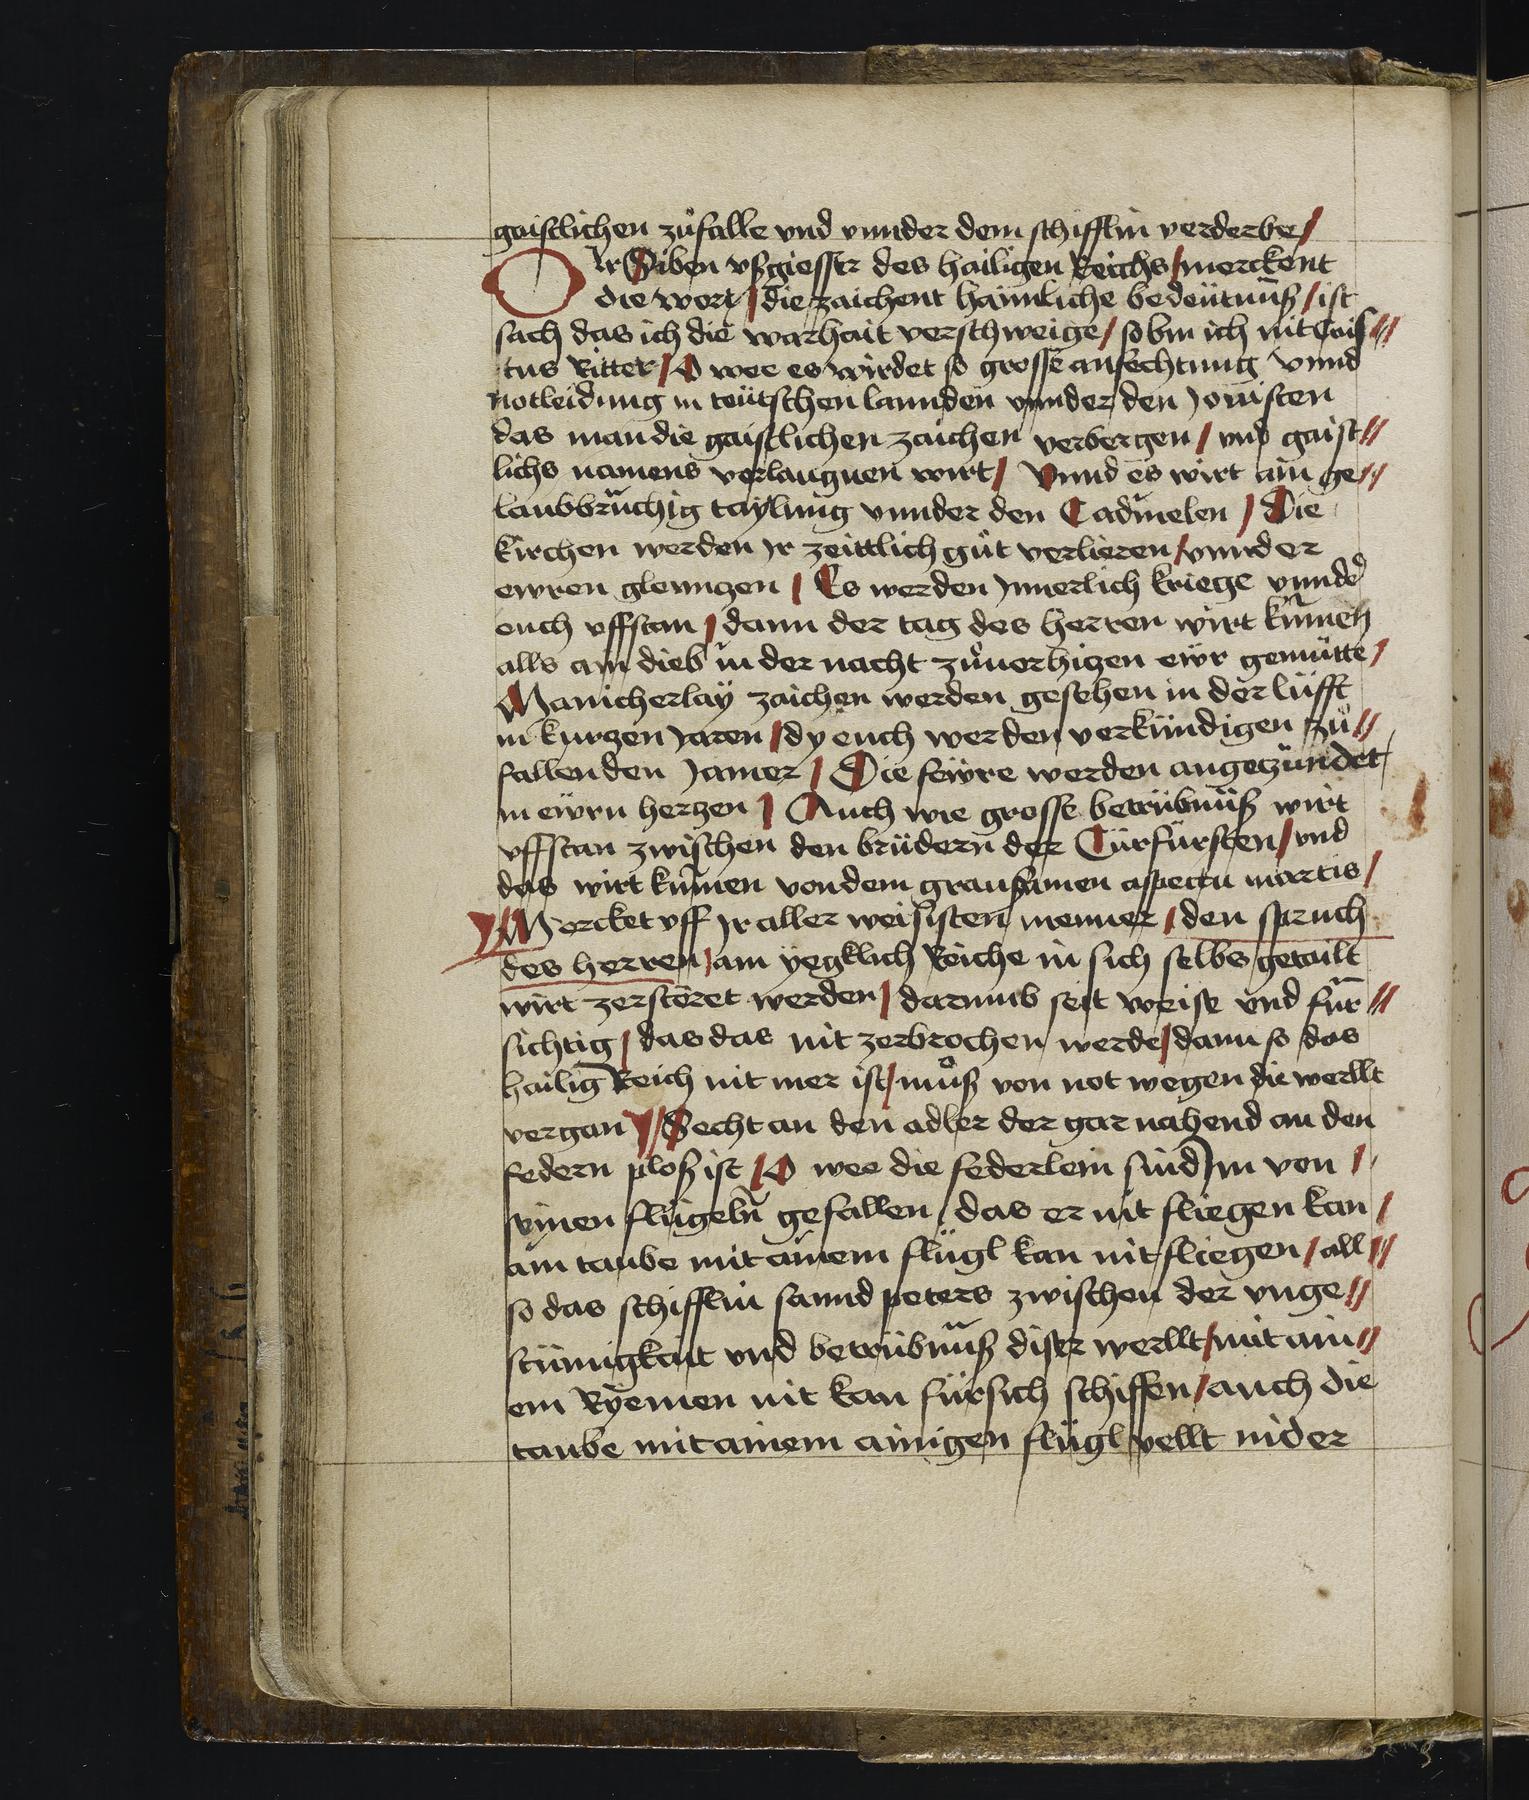 gaistlichen zůfalle vnd vnnder dem schifflin verderbe /
O Ir Siben vßgiesser des hailigen Reichs / merckent
die wort / die zaichent haimliche bedeütnuß / ist
sach das ich die warhait verschweige / so bin ich nit Cris //
tus Ritter / O wee es wirdet so grosse anfechtung Vnnd
notleidung in teütschen lannden vnnder den Jouisten
das man die gaistlichen zaichen verbergen / vnd gaist //
lichs namens verlaugnen wirt / Vnnd es wirt ain ge //
laubbrüchig taylung vnnder den Cadinelen / Die
kirchen werden Ir zeittlich gůt verlieren / vnnd er
ewren glenntzen / Es werden Jnnerlich kriege vnnder
euch vffstan / dann der tag des herren wirt kumen
alls ain dieb in der nacht zůuerhitzen ewr gemütte /
Manicherlaÿ zaichen werden gesehen in der lüfft
in kurtzen Jaren / dy euch werden verkündigen zů //
fallenden Jamer / Die fewre werden angezündet /
in ewrn hertzen / Auch wie grosse betrübnüß wirt
vffstan zwischen den brüdern der Cürfürsten / vnd
das wirt kumen von dem grausamen aspectu martis /
Mercket vff Ir aller weisisten menner / den spruch
des herren / ain yegklich Reiche in sich selbs getailt
wirt zerstöret werden / darumb seit weise vnd für //
sichtig / das das nit zerbrochen werde / dann so das
hailig Reich nit mer ist / můß von not wegen die werllt
vergan // Secht an den adler der gar nahend an den
federn ploß ist / O wee die federlein sind Im von /
seinen flügeln gefallen / das er nit fliegen kan /
ain taube mit ainem flügl kan nit fliegen / all //
so das schifflin sannd peters zwischen der vnge //
stümigkait vnd betrübnuß diser werllt / mit ain //
em Ryemen nit kan fürsich schiffen / auch die
taube mit ainem ainigen flügl vellt nider